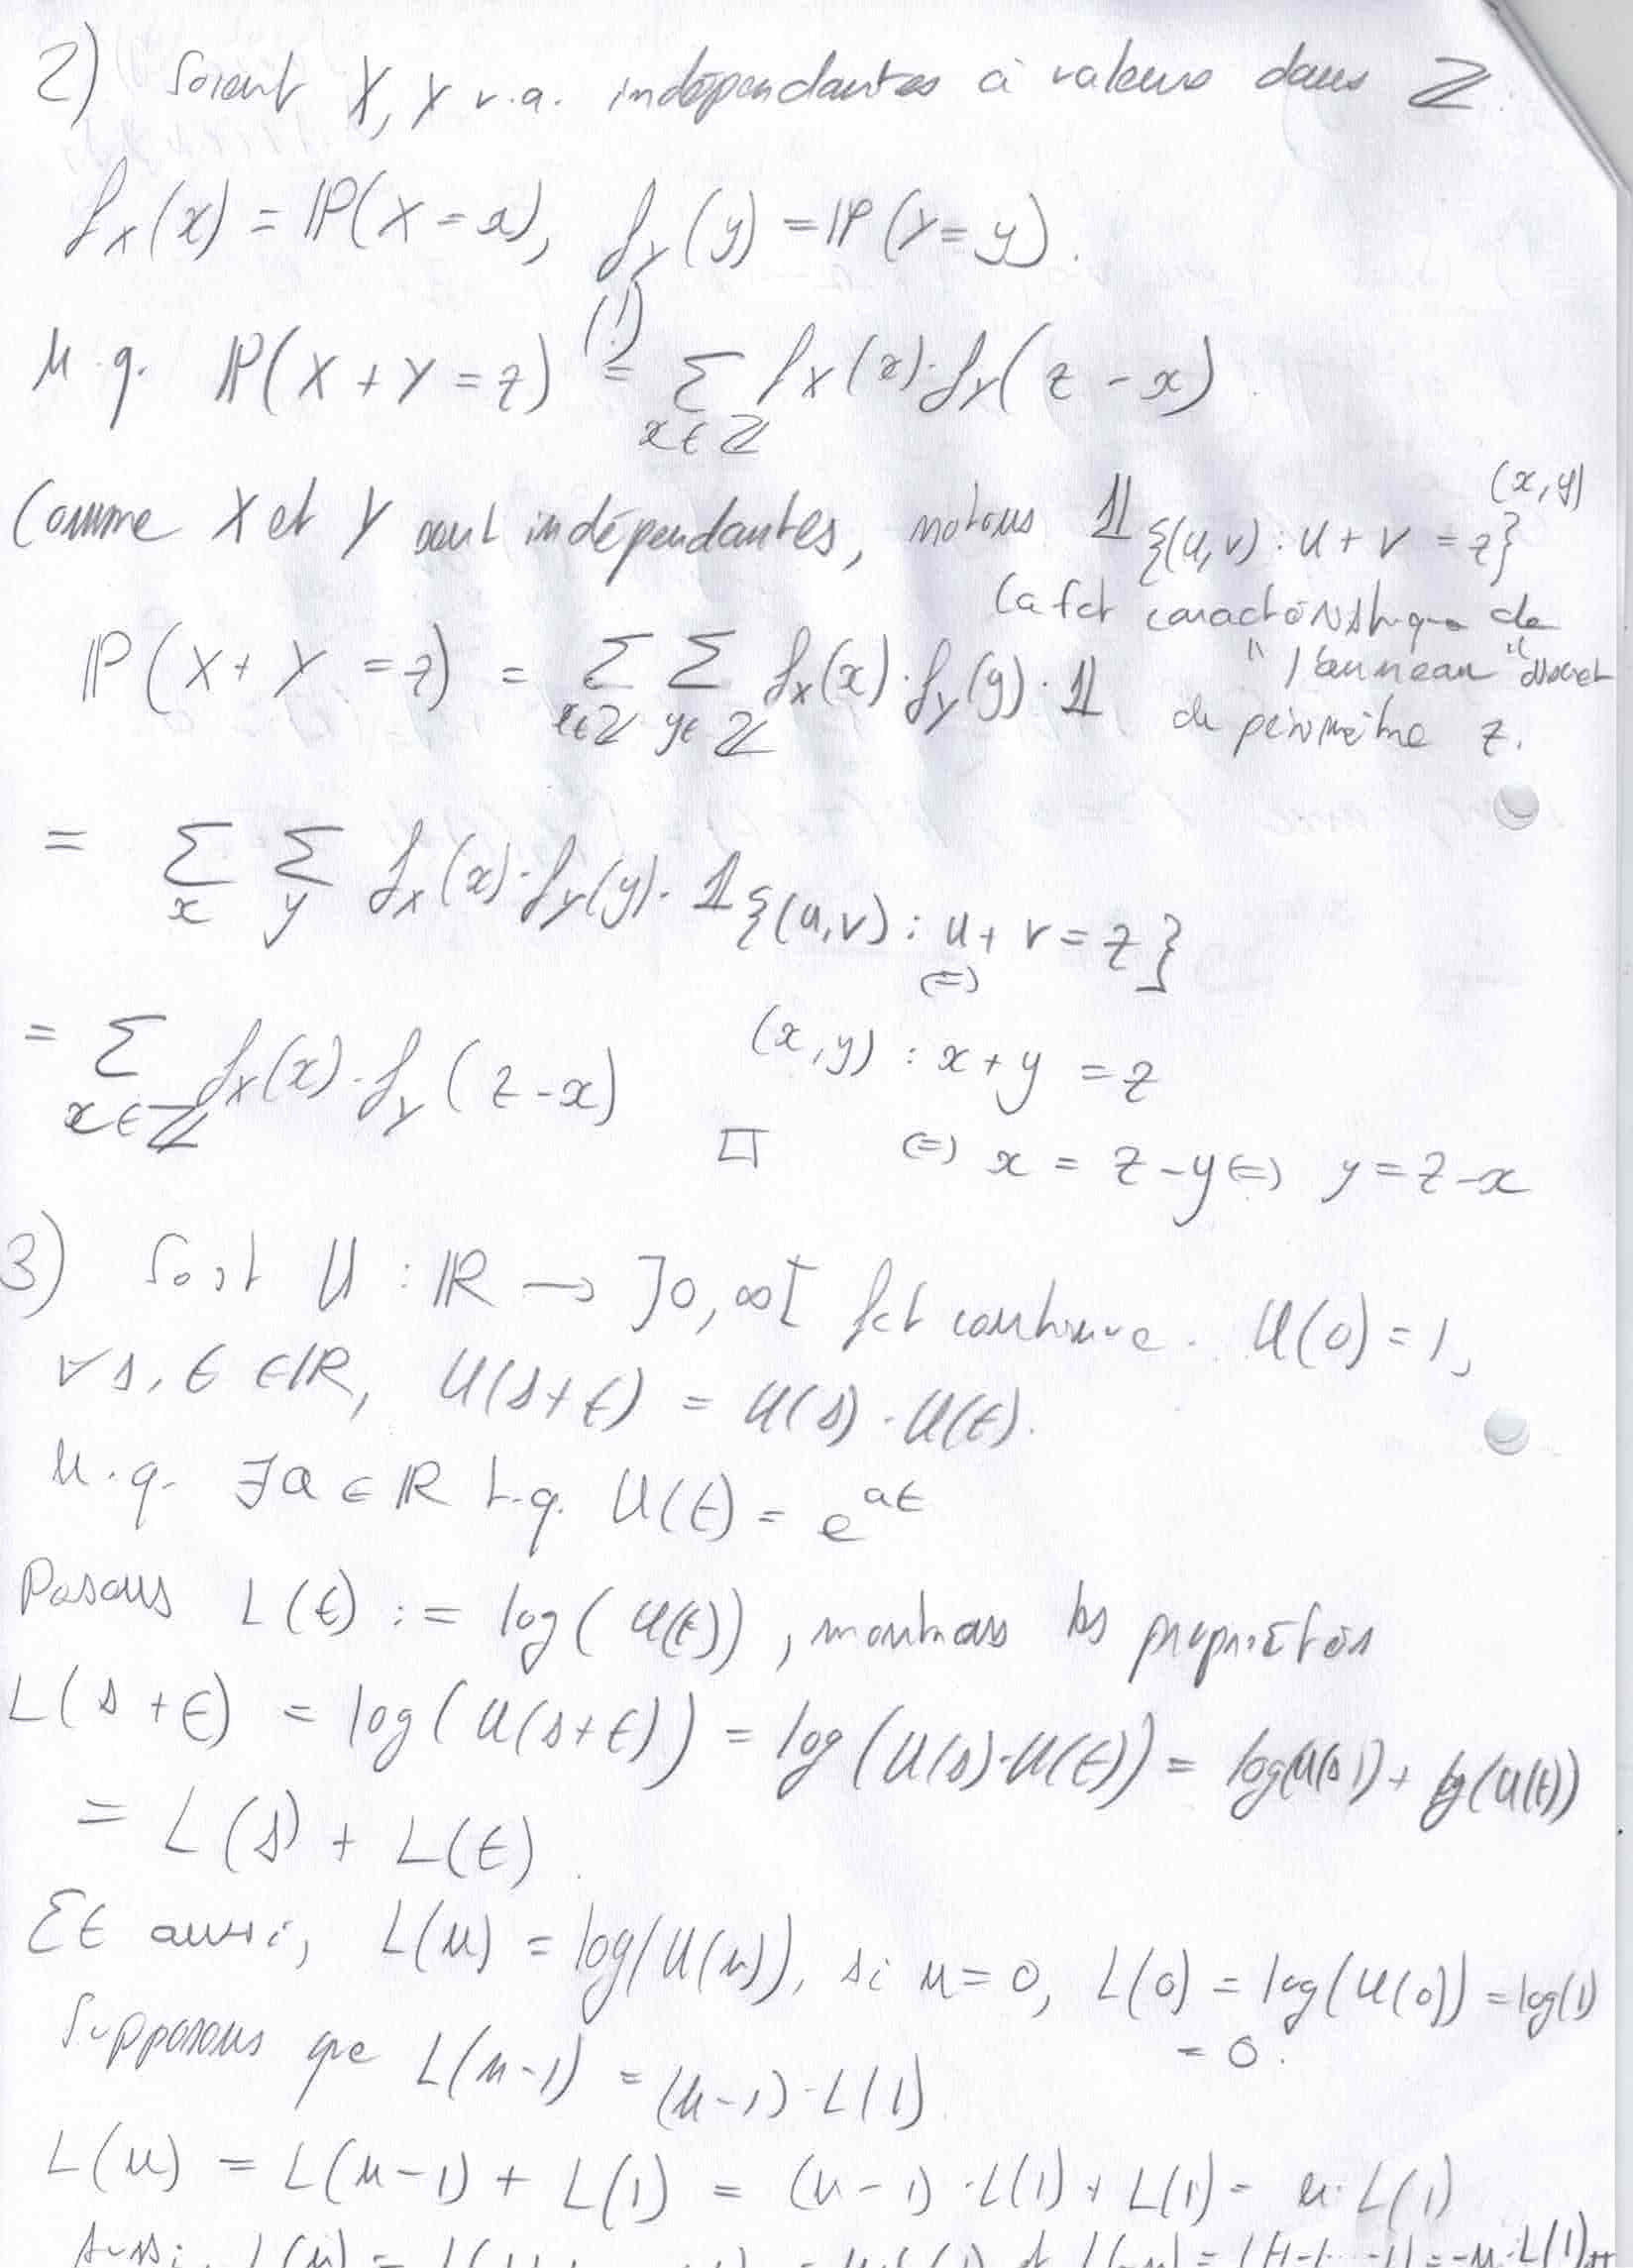 2) Soient X, Y v.a. indépendantes à valeurs dans ℤ.
f_X(x) = ℙ(X = x), f_Y(y) = ℙ(Y = y).
M.q. ℙ(X + Y = z) (!)= Σ_{x∈ℤ} f_X(x)·f_Y(z - x)
Comme X et Y sont indépendantes, notons 𝟙_{{(u,v) : u + v = z}} (x,y)
la fct caractéristique de
"l'anneau" discret
de périmètre z.
ℙ(X + Y = z) = Σ_{x∈ℤ} Σ_{y∈ℤ} f_X(x)·f_Y(y)·𝟙
= Σ_x Σ_y f_X(x)·f_Y(y)·𝟙_{{(u,v) : u + v = z}}
⇔
(x,y) : x + y = z
= Σ_{x∈ℤ} f_X(x)·f_Y(z - x) □
⇔ x = z - y ⇔ y = z - x
3) Soit U : ℝ → ]0, ∞[ fct continue. U(0) = 1,
∀ s, t ∈ ℝ, U(s + t) = U(s)·U(t).
M.q. ∃ a ∈ ℝ t.q. U(t) = e^{at}
Posons L(t) := log(U(t)), montrons les propriétés
L(s + t) = log(U(s + t)) = log(U(s)·U(t)) = log(U(s)) + log(U(t))
= L(s) + L(t).
Et aussi, L(n) = log(U(n)), si n = 0, L(0) = log(U(0)) = log(1)
= 0.
Supposons que L(n-1) = (n-1)·L(1)
L(n) = L(n-1) + L(1) = (n-1)·L(1) + L(1) = n·L(1)
Aussi